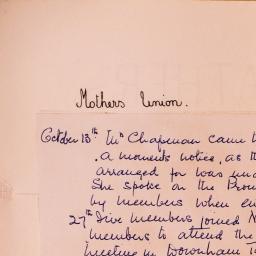 Mothers Union.
October 13th Mrs Chapman came
a moments notice, as th
arranged for was un
She spoke on the Prom
by members when en
27th Five members joined N
members to attend the
meeting in Downham